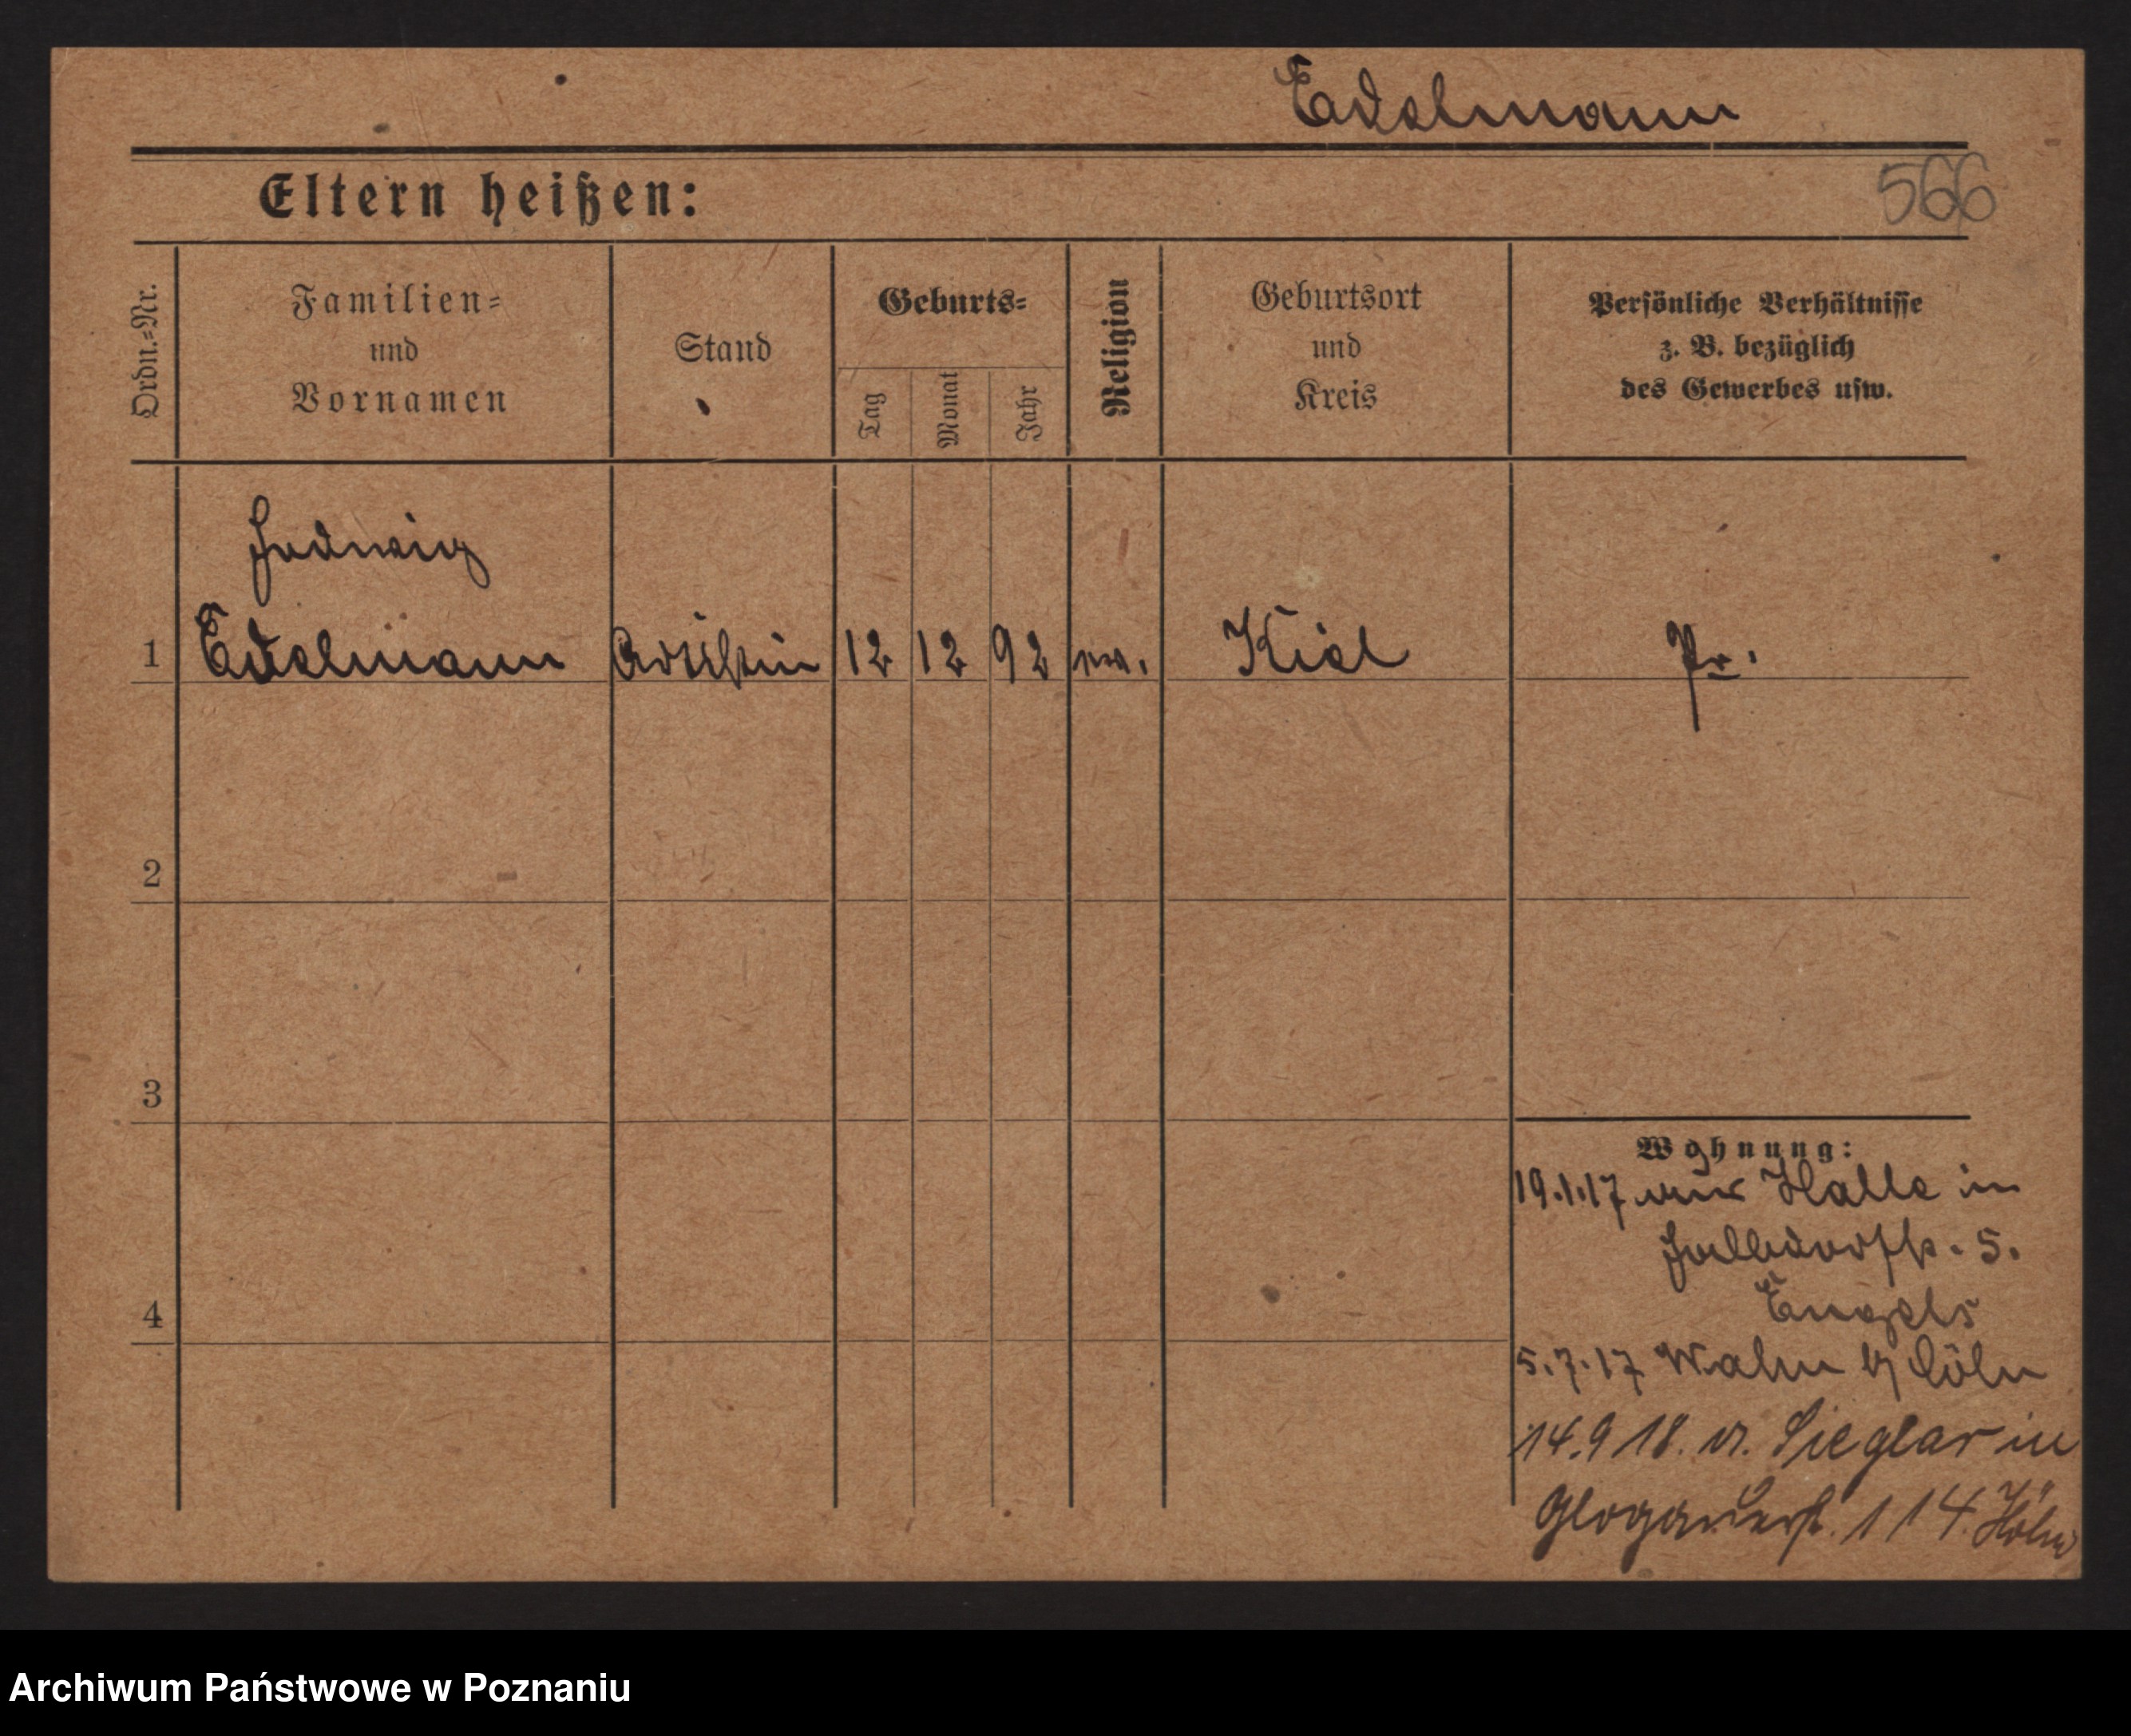 Edelmann
Eltern heißen:
566
Ordn.=Nr.
Familien=
und
Vornamen
Stand
Geburts=
Tag
Monat
Jahr
Religion
Geburtsort
und
Kreis
Persönliche Verhältnisse
z. B. bezüglich
des Gewerbes usw.
Hedwig
1 Edelmann Artistin 12 12 92 ev. Kiel Pr.
2
3
4
Wohnung:
19.1.17 aus Halle in
5.
Engels
5.7.17 Wahn b/ Cöln
14.9 18. v. Sieglar in
Glogauerst. 114.
Archiwum Państwowe w Poznaniu